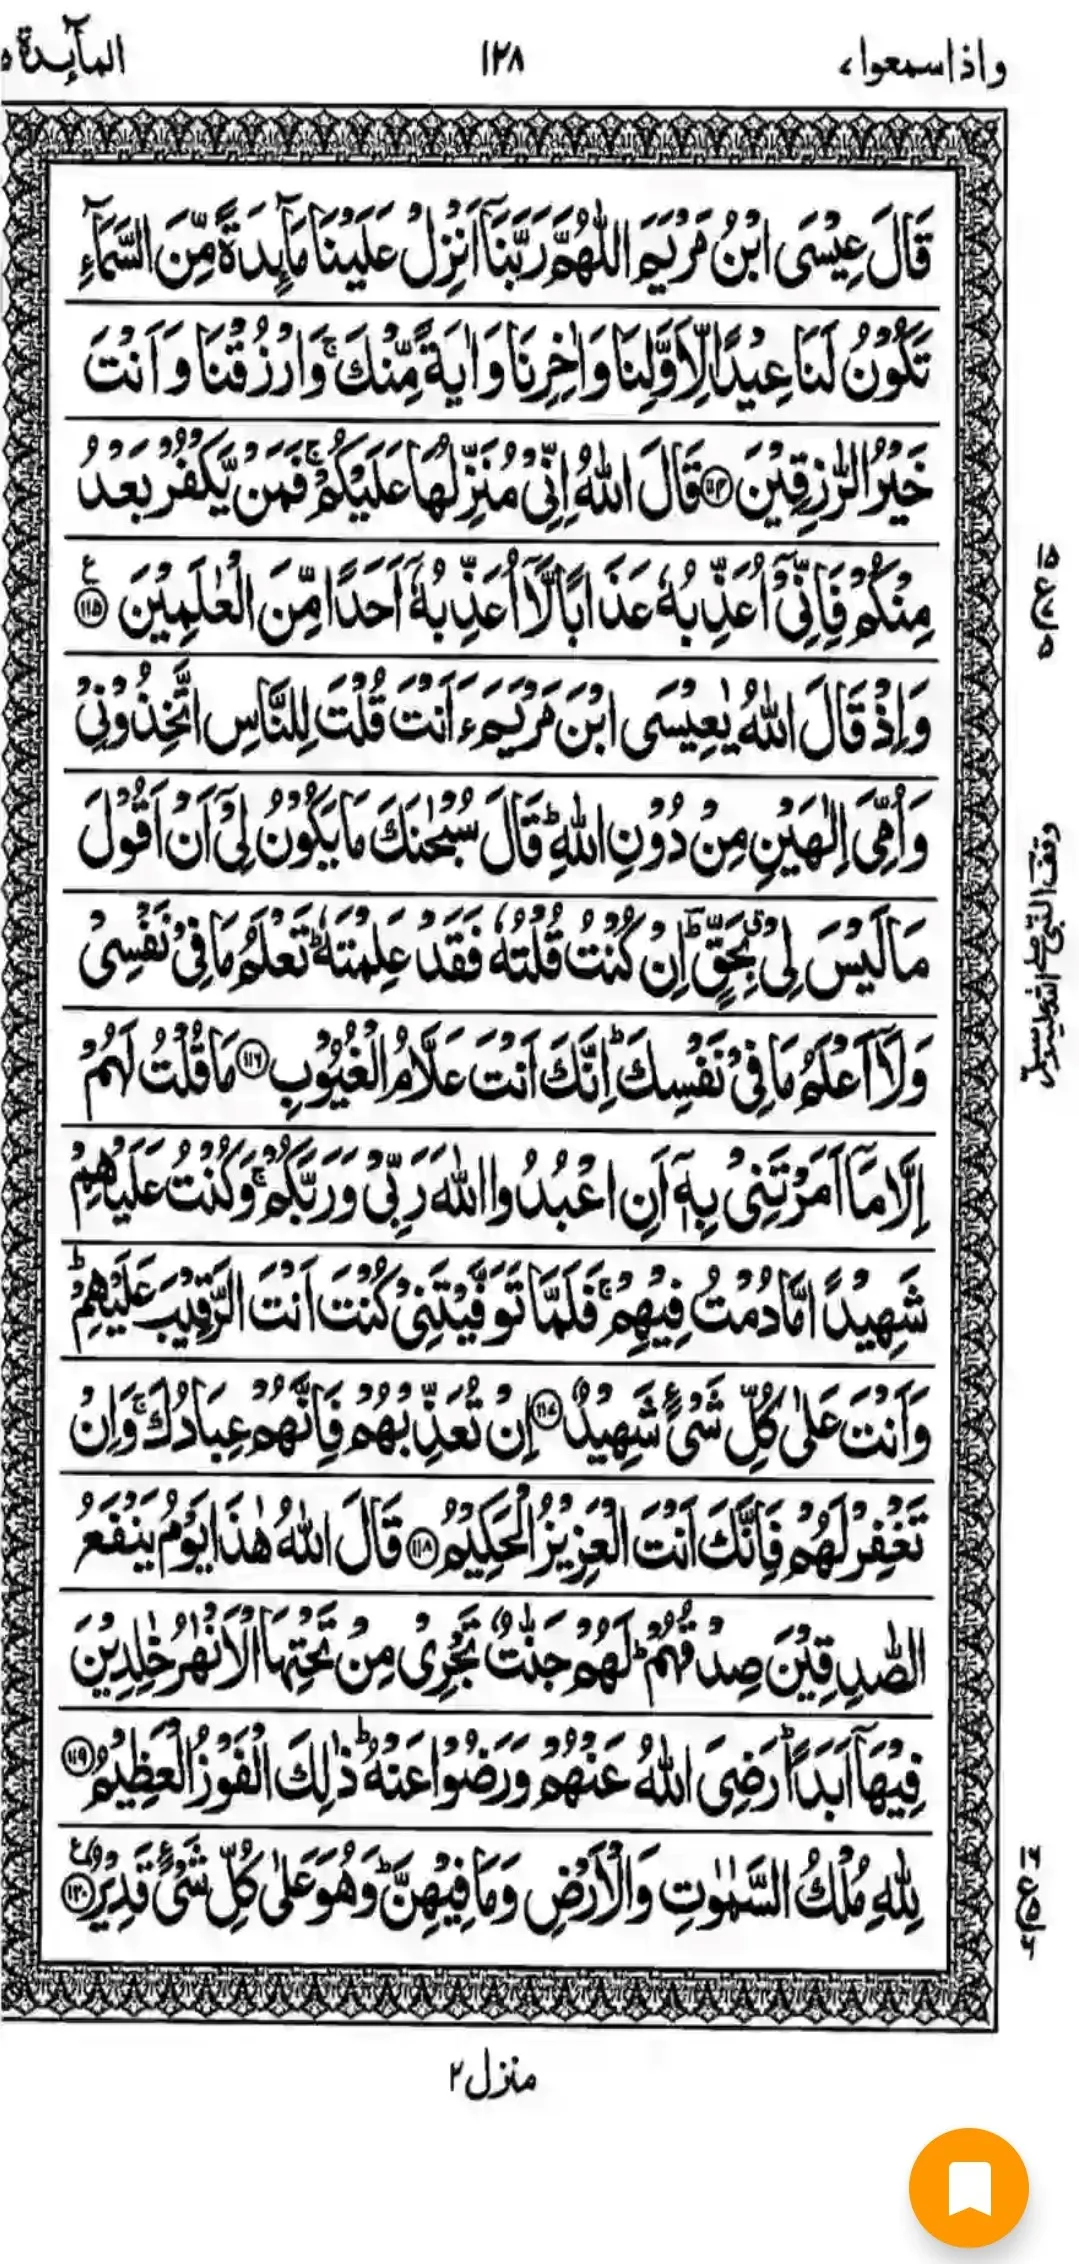 واذاسمعوا ٧ ١٢٨ المآئدة ٥
قَالَ عِيْسَى ابْنُ مَرْيَمَ اللّٰهُمَّ رَبَّنَاۤ اَنْزِلْ عَلَيْنَا مَآئِدَةً مِّنَ السَّمَآءِ
تَكُوْنُ لَنَا عِيْدًا لِّاَوَّلِنَا وَاٰخِرِنَا وَاٰيَةً مِّنْكَ ۚ وَارْزُقْنَا وَاَنْتَ
خَيْرُ الرّٰزِقِيْنَ ﴿۱۱۴﴾ قَالَ اللّٰهُ اِنِّيْ مُنَزِّلُهَا عَلَيْكُمْ ۚ فَمَنْ يَّكْفُرْ بَعْدُ
مِنْكُمْ فَاِنِّيْۤ اُعَذِّبُهٗ عَذَابًا لَّاۤ اُعَذِّبُهٗۤ اَحَدًا مِّنَ الْعٰلَمِيْنَ ﴿۱۱۵﴾ ع
١٥
ع
٧
٥
وَاِذْ قَالَ اللّٰهُ يٰعِيْسَى ابْنَ مَرْيَمَ ءَاَنْتَ قُلْتَ لِلنَّاسِ اتَّخِذُوْنِيْ
وَاُمِّيَ اِلٰهَيْنِ مِنْ دُوْنِ اللّٰهِ ؕ قَالَ سُبْحٰنَكَ مَا يَكُوْنُ لِيْۤ اَنْ اَقُوْلَ
مَا لَيْسَ لِيْ بِحَقٍّ ؕ اِنْ كُنْتُ قُلْتُهٗ فَقَدْ عَلِمْتَهٗ ؕ تَعْلَمُ مَا فِيْ نَفْسِيْ
وقف النبي صلى الله عليه وسلم
وَلَاۤ اَعْلَمُ مَا فِيْ نَفْسِكَ ؕ اِنَّكَ اَنْتَ عَلَّامُ الْغُيُوْبِ ﴿۱۱۶﴾ مَا قُلْتُ لَهُمْ
اِلَّا مَاۤ اَمَرْتَنِيْ بِهٖۤ اَنِ اعْبُدُوا اللّٰهَ رَبِّيْ وَرَبَّكُمْ ۚ وَكُنْتُ عَلَيْهِمْ
شَهِيْدًا مَّا دُمْتُ فِيْهِمْ ۚ فَلَمَّا تَوَفَّيْتَنِيْ كُنْتَ اَنْتَ الرَّقِيْبَ عَلَيْهِمْ ؕ
وَاَنْتَ عَلٰى كُلِّ شَيْءٍ شَهِيْدٌ ﴿۱۱۷﴾ اِنْ تُعَذِّبْهُمْ فَاِنَّهُمْ عِبَادُكَ ۚ وَاِنْ
تَغْفِرْ لَهُمْ فَاِنَّكَ اَنْتَ الْعَزِيْزُ الْحَكِيْمُ ﴿۱۱۸﴾ قَالَ اللّٰهُ هٰذَا يَوْمُ يَنْفَعُ
الصّٰدِقِيْنَ صِدْقُهُمْ ؕ لَهُمْ جَنّٰتٌ تَجْرِيْ مِنْ تَحْتِهَا الْاَنْهٰرُ خٰلِدِيْنَ
فِيْهَاۤ اَبَدًا ؕ رَضِيَ اللّٰهُ عَنْهُمْ وَرَضُوْا عَنْهُ ؕ ذٰلِكَ الْفَوْزُ الْعَظِيْمُ ﴿۱۱۹﴾
لِلّٰهِ مُلْكُ السَّمٰوٰتِ وَالْاَرْضِ وَمَا فِيْهِنَّ ؕ وَهُوَ عَلٰى كُلِّ شَيْءٍ قَدِيْرٌ ﴿۱۲۰﴾ ع
١٦
ع
٥
٦
منزل ٢